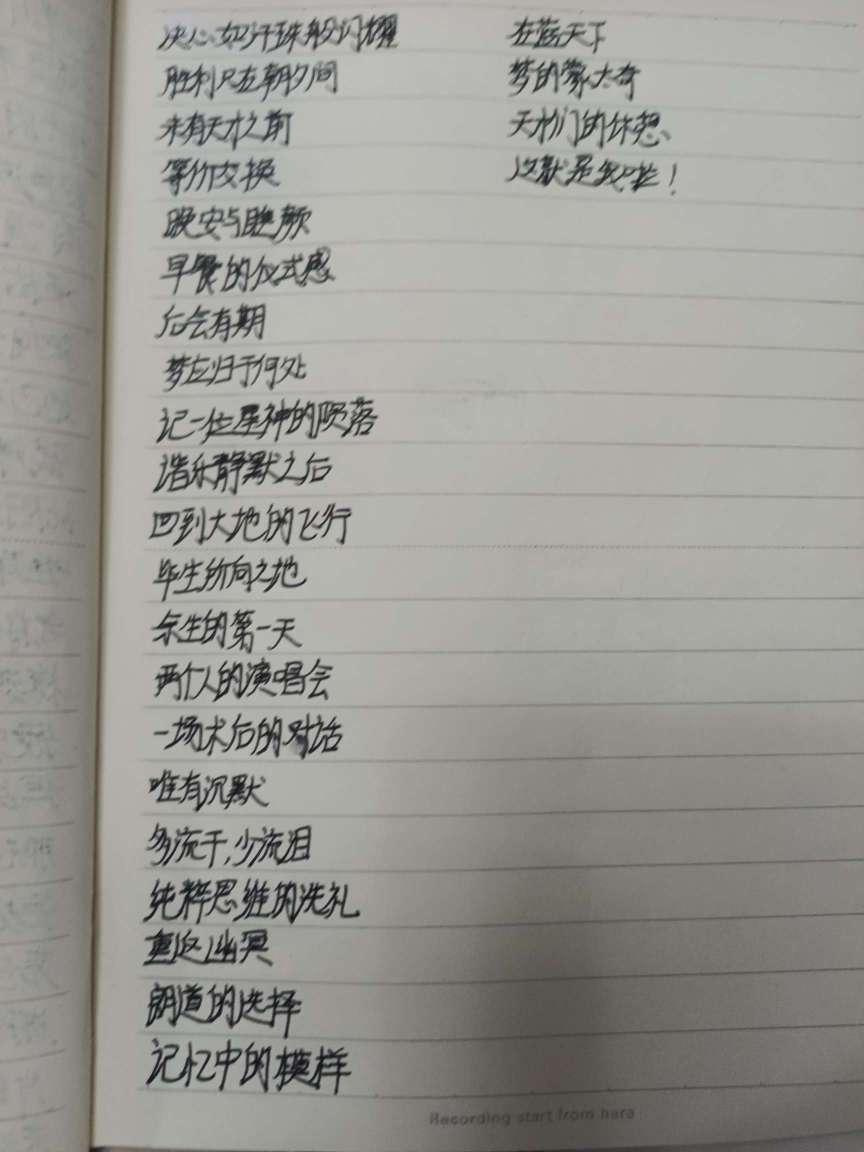 决心如汗珠般闪耀
胜利只在朝夕间
未有天才之前
等价交换
晚安与睡颜
早餐的仪式感
后会有期
梦应归于何处
记一位星神的陨落
谐乐静默之后
回到大地的飞行
毕生所向之地
余生的第一天
两个人的演唱会
一场术后的对话
唯有沉默
多流汗,少流泪
纯粹思维的洗礼
重返幽冥
朗道的选择
记忆中的模样
在蓝天下
梦的蒙太奇
天才们的休憩
这就是我啦!
Recording start from here